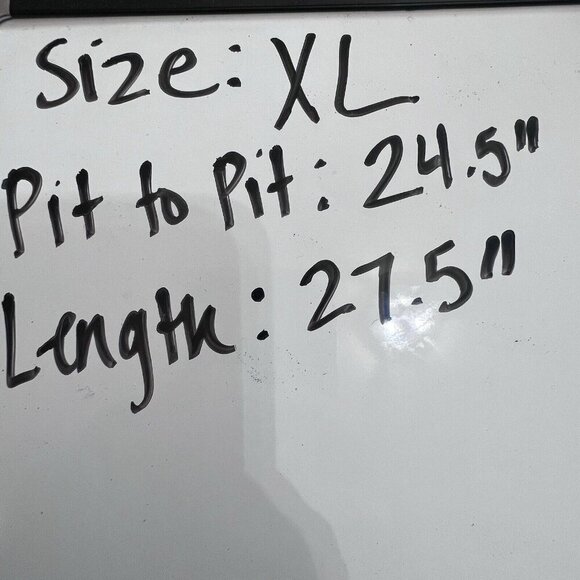 Size: XL
Pit to Pit: 24.5"
Length: 27.5"